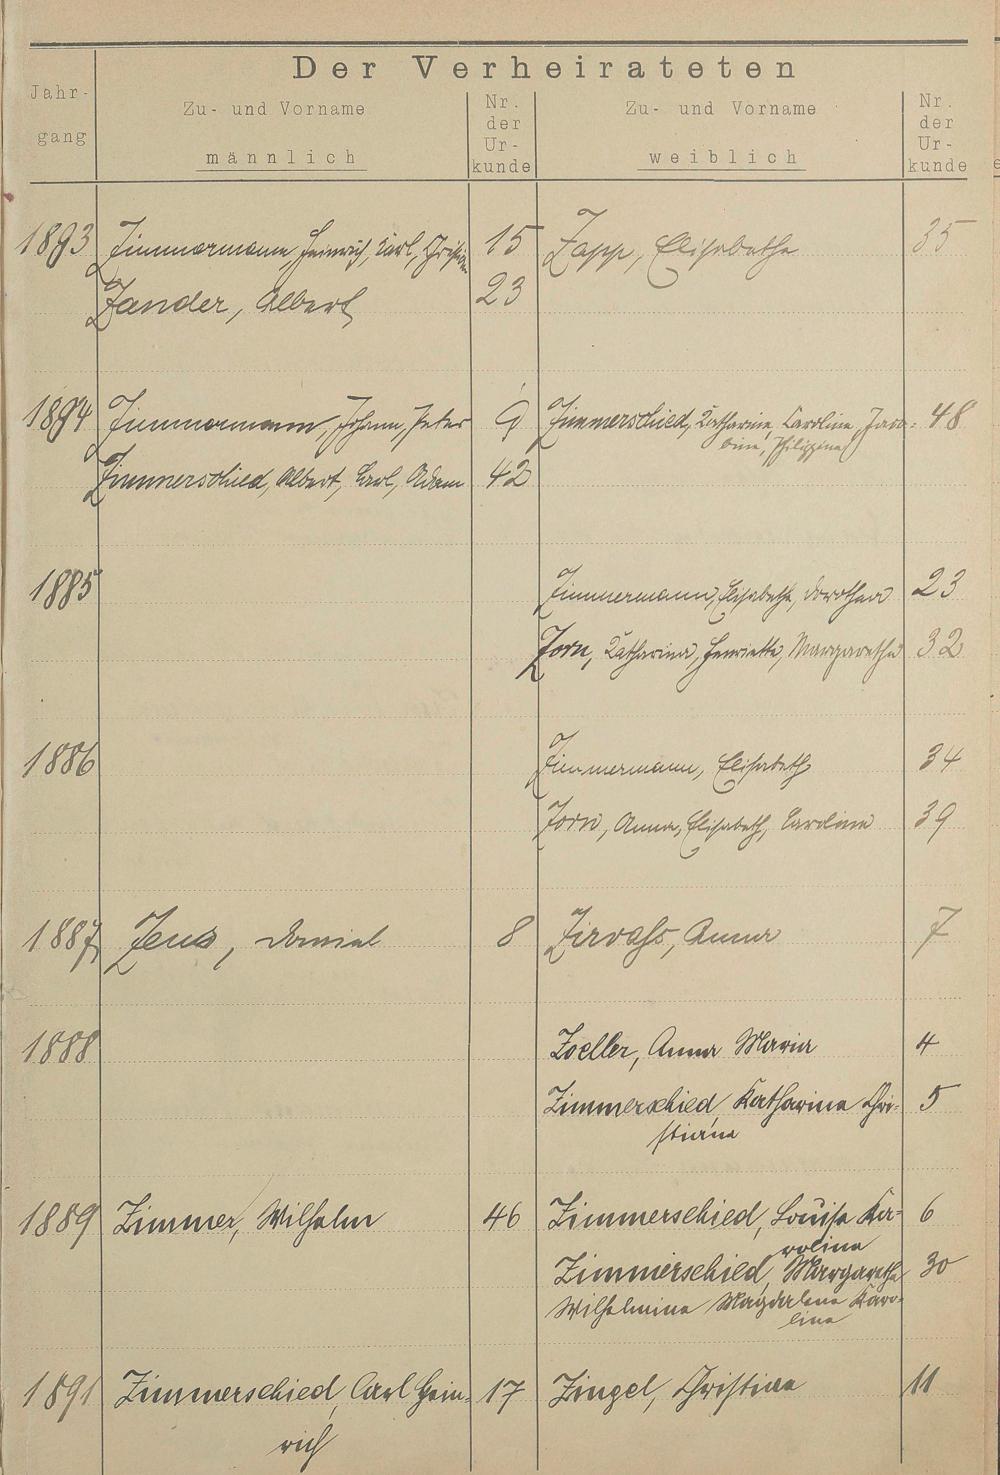 Der Verheirateten
Jahr-
gang
Zu- und Vorname
männlich
Nr.
der
Ur-
kunde
Zu- und Vorname
weiblich
Nr.
der
Ur-
kunde
1893 Zimmermann, Heinrich, Karl, Christian 15 Zapp, Elisabetha 35
Zander, Albert 23
1894 Zimmermann, Johann, Peter 9 Zimmerschied, Katharina, Karoline, Jaco- 48
bine, Philippine
Zimmerschied, Albert, Carl, Adam 42
1885 Zimmermann, Elisabetha, Dorothea 23
Zorn, Katharina, Henriette, Margaretha 32
1886 Zimmermann, Elisabeth 34
Zorn, Anna, Elisabeth, Caroline 39
1887 Zeus, Daniel 8 Zirvass, Anna 7
1888 Zoeller, Anna Maria 4
Zimmerschied, Katharina Chri- 5
stiana
1889 Zimmer, Wilhelm 46 Zimmerschied, Louise Ka- 6
rolina
Zimmerschied, Margaretha 30
Wilhelmina Magdalena Karo-
line
1891 Zimmerschied, Carl Hein- 17 Zingel, Christine 11
rich